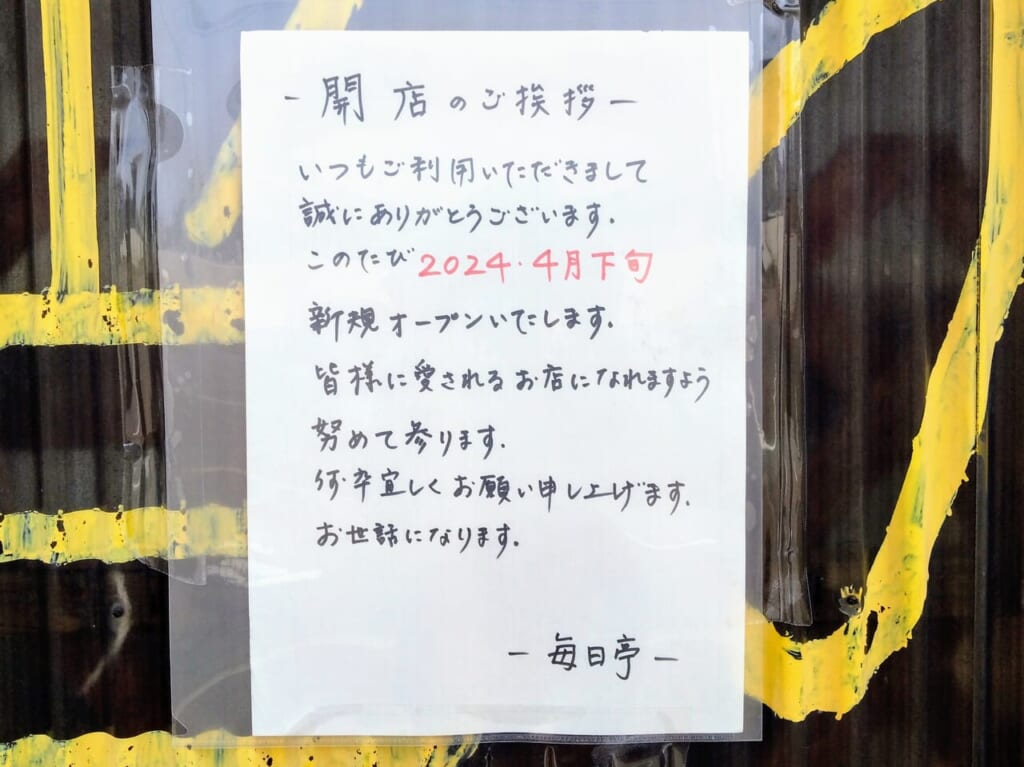 - 開店のご挨拶 -
いつもご利用いただきまして
誠にありがとうございます.
このたび 2024.4月下旬
新規オープンいたします.
皆様に愛されるお店になれますよう
努めて参ります.
何卒宜しくお願い申し上げます.
お世話になります.
- 毎日亭 -